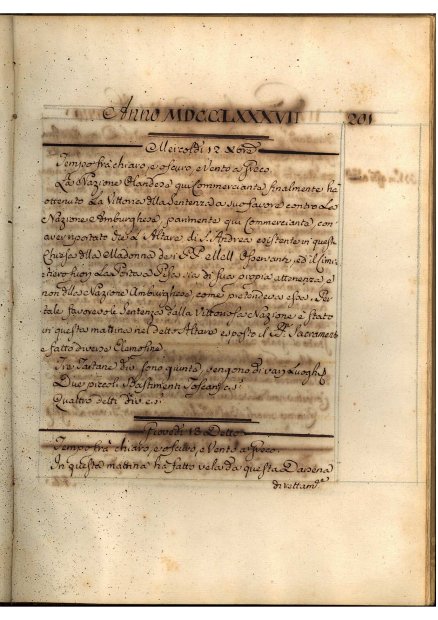 Anno MDCCLXXXVII 201
Mercoldì 12 Xbre
Tempo frà chiaro, e oscuro, e Vento a Greco.
La Nazione Olandese qui Commerciante finalmente hà
ottenuto la Vittoria della Sentenza a suo favore contro la
Nazione Amburghese, parimente qui Commerciante, con
aver riportato che l'Altare di S. Andrea esistente in questa
Chiesa della Madonna de i PP. dell' Osservanza, ed il Cimi
tero fuori la Porta a Pisa sia di sua propria attenenza e
non della Nazione Amburghese, come pretendeva essa. Per
tale favorevole Sentenza dalla Vittoriosa Nazione è stato
in questa mattina nel detto Altare esposto il SS. Sacramento
e fatto diverse Elemosine.
Tre Tartane div. sono quì venute, vengono di varj Luoghi
Due piccoli Bastimenti Toscani
Quattro detti
Giovedì 13 Detto
Tempo frà chiaro, e oscuro, e Vento a Greco.
In questa mattina ha fatto vela da questa Darsena
direttam.e